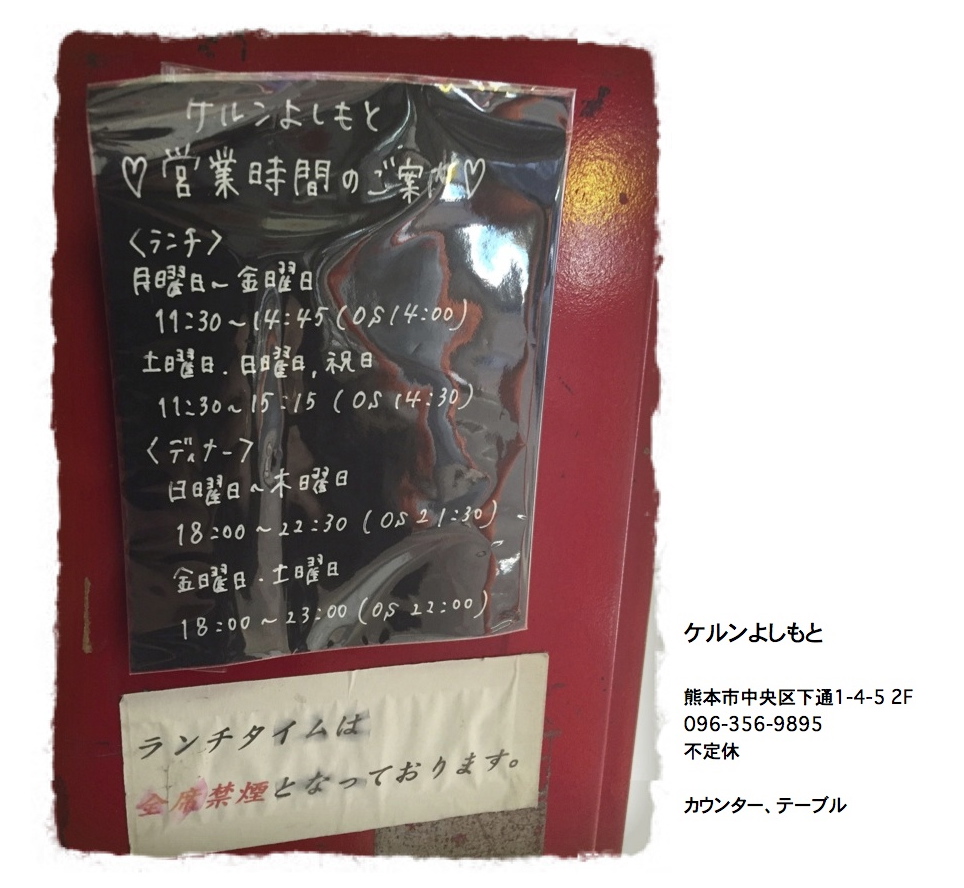 ケルンよしもと
♡営業時間のご案内♡
〈ランチ〉
月曜日〜金曜日
11:30〜14:45(OS14:00)
土曜日.日曜日,祝日
11:30〜15:15(OS14:30)
〈ディナー〉
日曜日〜木曜日
18:00〜22:30(OS21:30)
金曜日・土曜日
18:00〜23:00(OS22:00)
ランチタイムは
全席禁煙となっております。
ケルンよしもと
熊本市中央区下通1-4-5 2F
096-356-9895
不定休
カウンター、テーブル